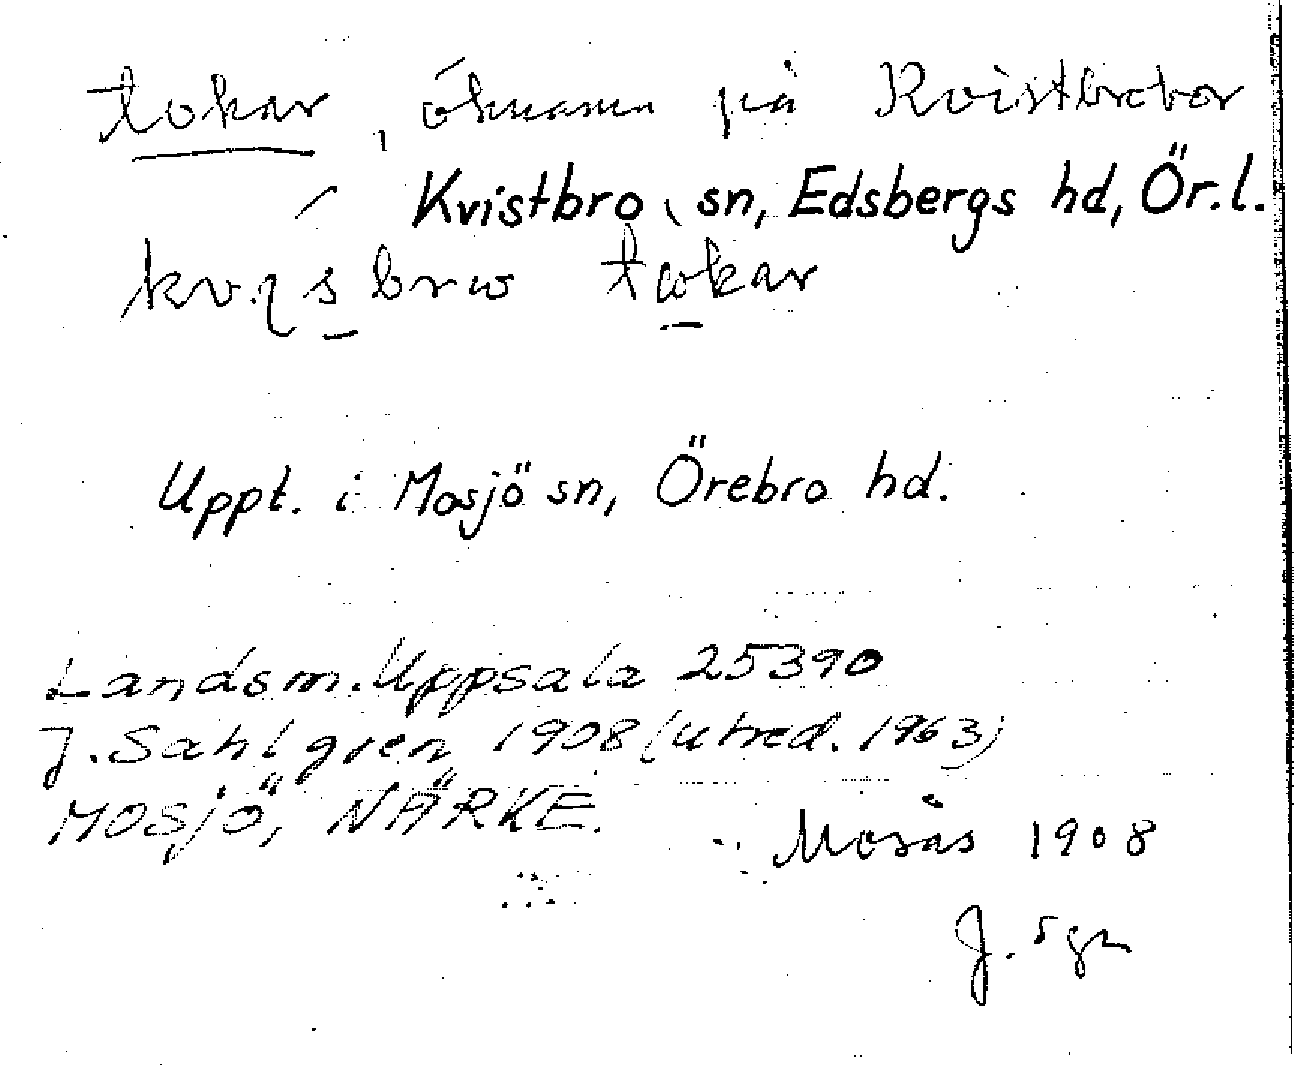 tokar, öknamn på Kvistbrobor
Kvistbro sn, Edsbergs hd, Ör.l.
Uppt. i Mosjö sn, Örebro hd.
Landsm. Uppsala 25390
J. Sahlgren 1908 (utred. 1963)
MOSJÖ, NÄRKE.
Mosås 1908
J. Sgn